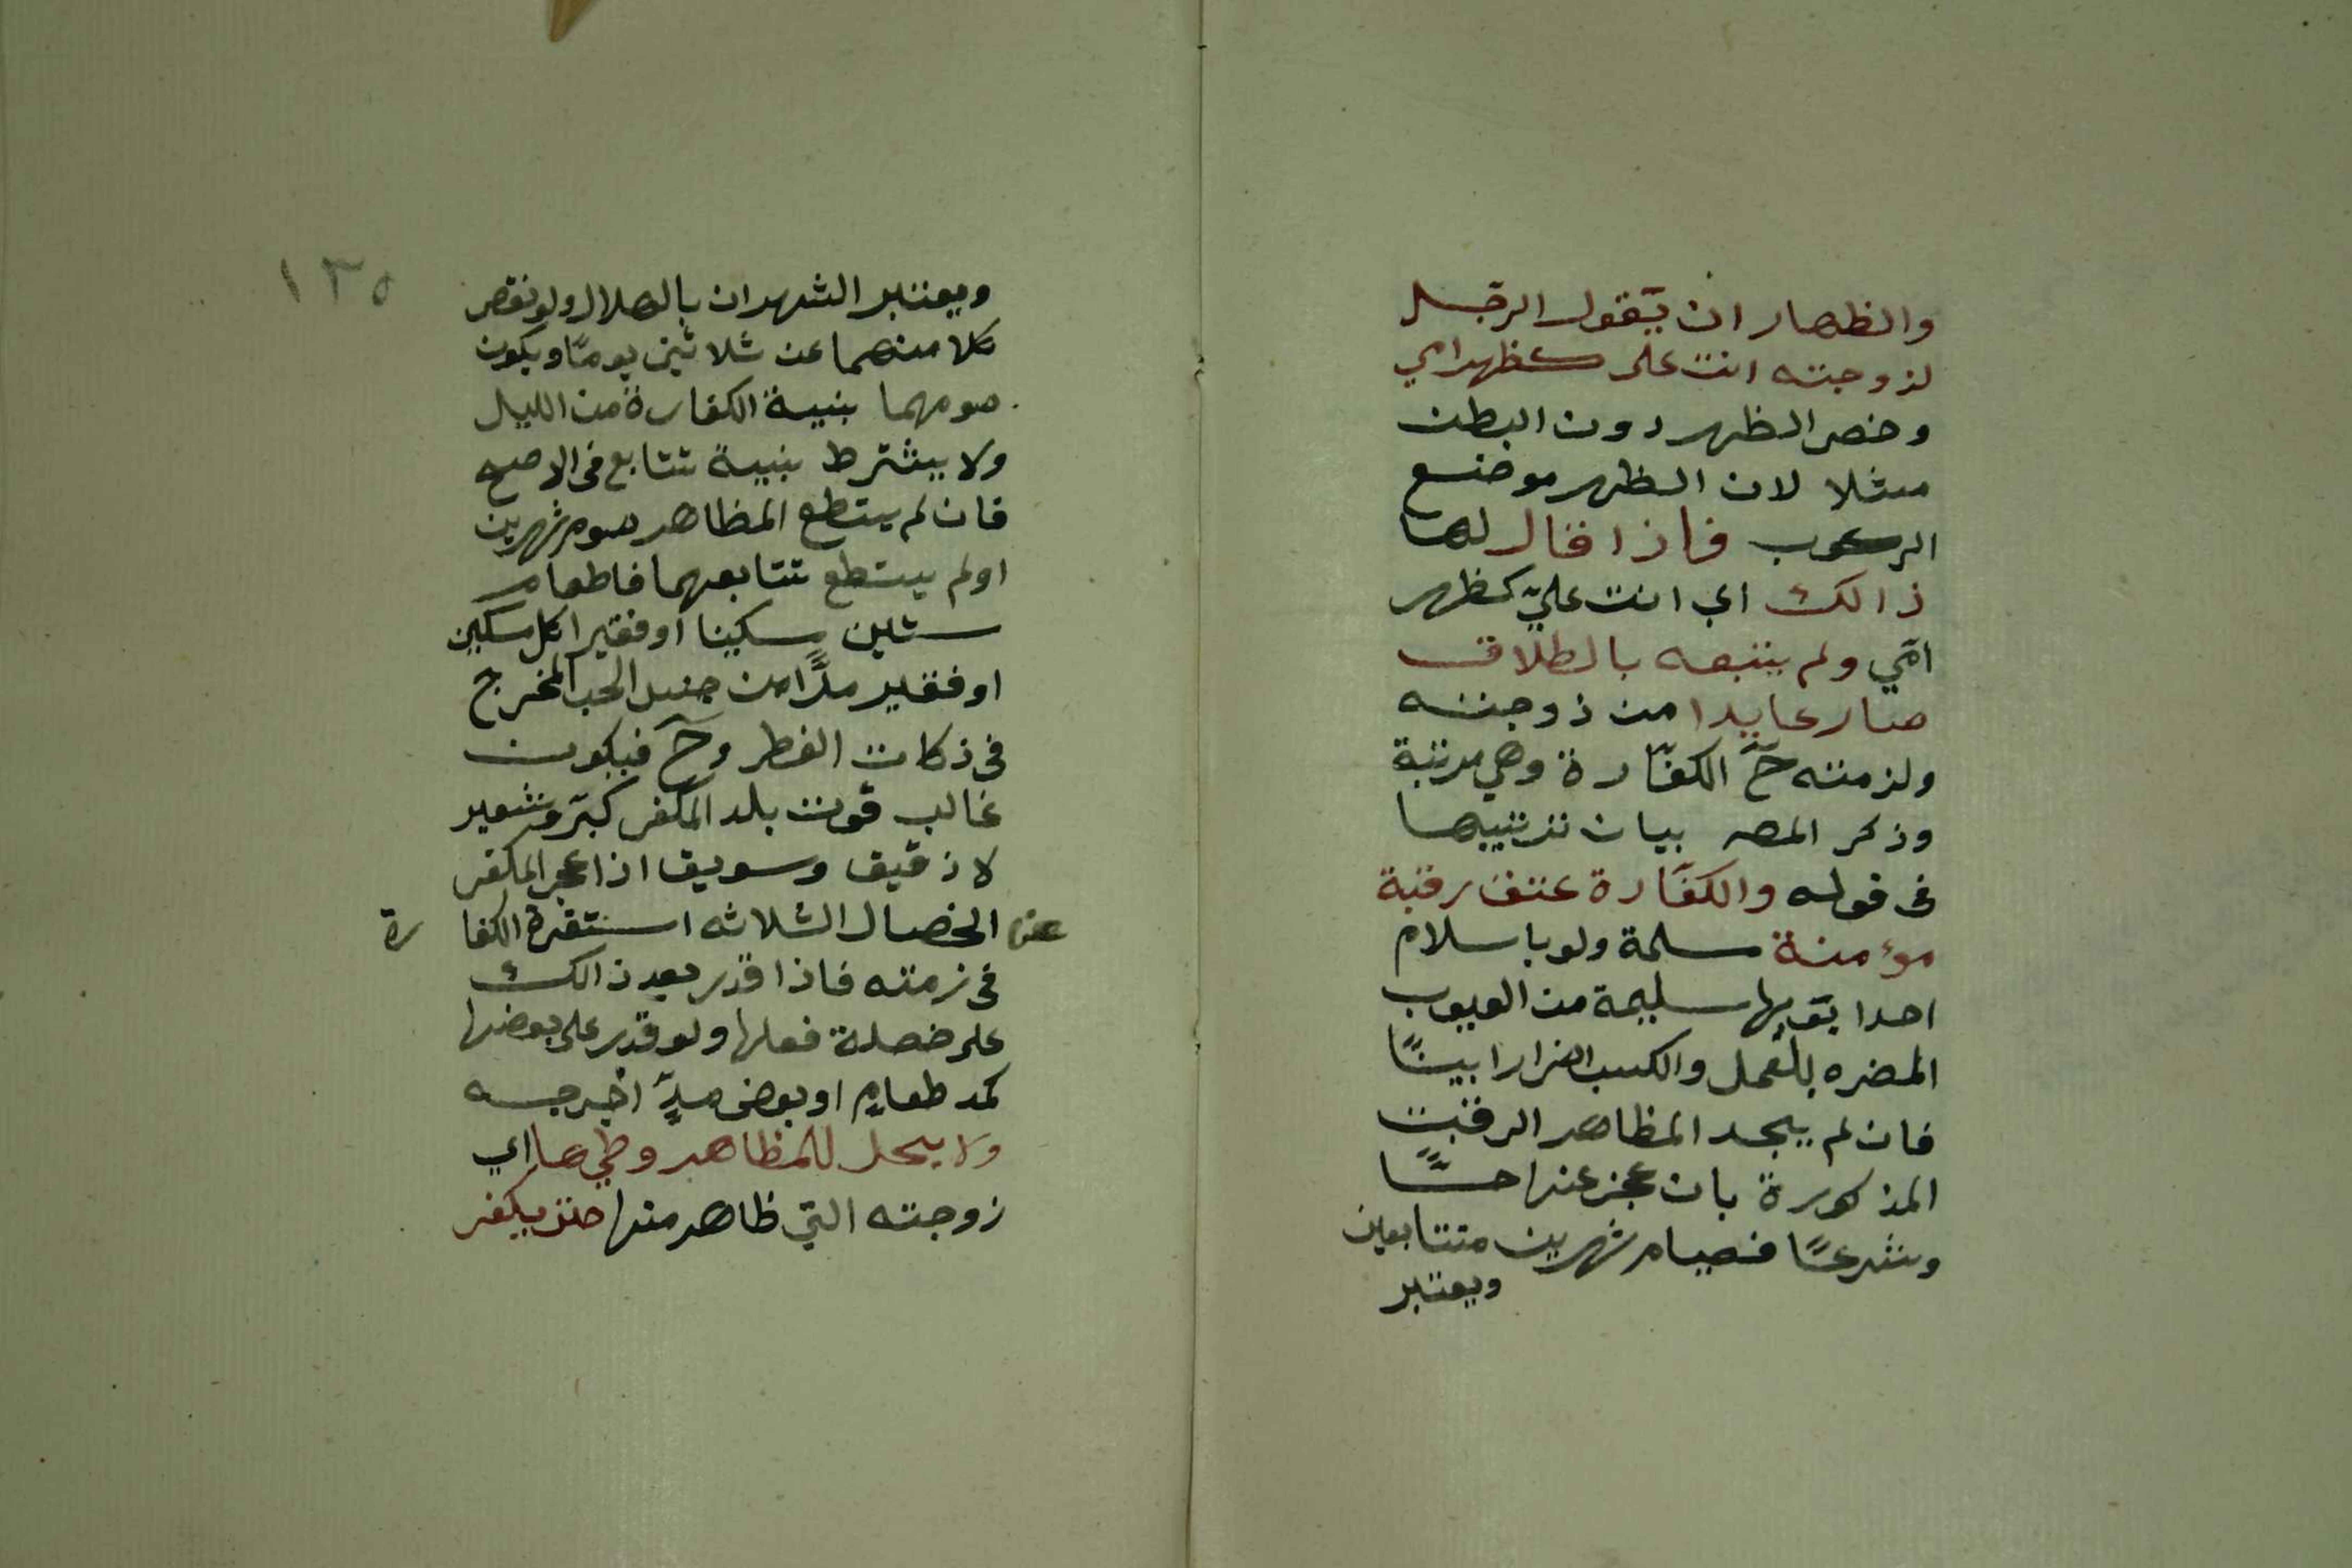 والظهار ان يقول الرجل
لزوجته انت على كظهر امي
وخص الظهر دون البطن
مثلا لان الظهر موضع
الركوب فاذا قال لها
ذالك اي انت عليّ كظهر
امّي ولم يتبعه بالطلاق
صار عايدا من زوجته
ولزمته حٓ الكفّارة وهي مرتبة
وذكر المصه بيان ترتيبها
فى قوله والكفّارة عتق رقبة
مؤمنة مسلمة ولو باسلام
احدا بَوَيها سليمة من العيوب
المضره بالعمل والكسب اضرارا بينًا
فان لم يجد المظاهر الرقبت
المذكورة بان عجز عنها حسًّا
وشرعًا فصيام شهرين متتابعين
ويعتبر
١٣٥
ويعتبر الشهران بالهلال ولو نقص
كلا منهما عن ثلاثين يومًا ويكون
صومهما بنية الكفارة من الليل
ولا يشترط بنية تتابع فى الاصح
فان لم يستطع المظاهر صوم شهرين
اولم يستطع تتابعهما فاطعام
ستين مسكينا او فقيرا كل مسكين
او فقير مدًّا من جنس الحب المخرج
فى زكات الفطر وحٓ فيكون
غالب قوت بلد المكفر كبرّ وشعير
لا دقيق وسويق اذا عجز المكفر
عن الخصال الثلاثه استقرة الكفارة
فى زمته فاذا قدر بعد ذالك
على خصلة فعلها ولو قدر على بعضها
كمد طعامٍ او بعض مدٍّ اخرجه
ولا يحل للمظاهر وطيها اي
زوجته التي ظاهر منها حتى يكفر